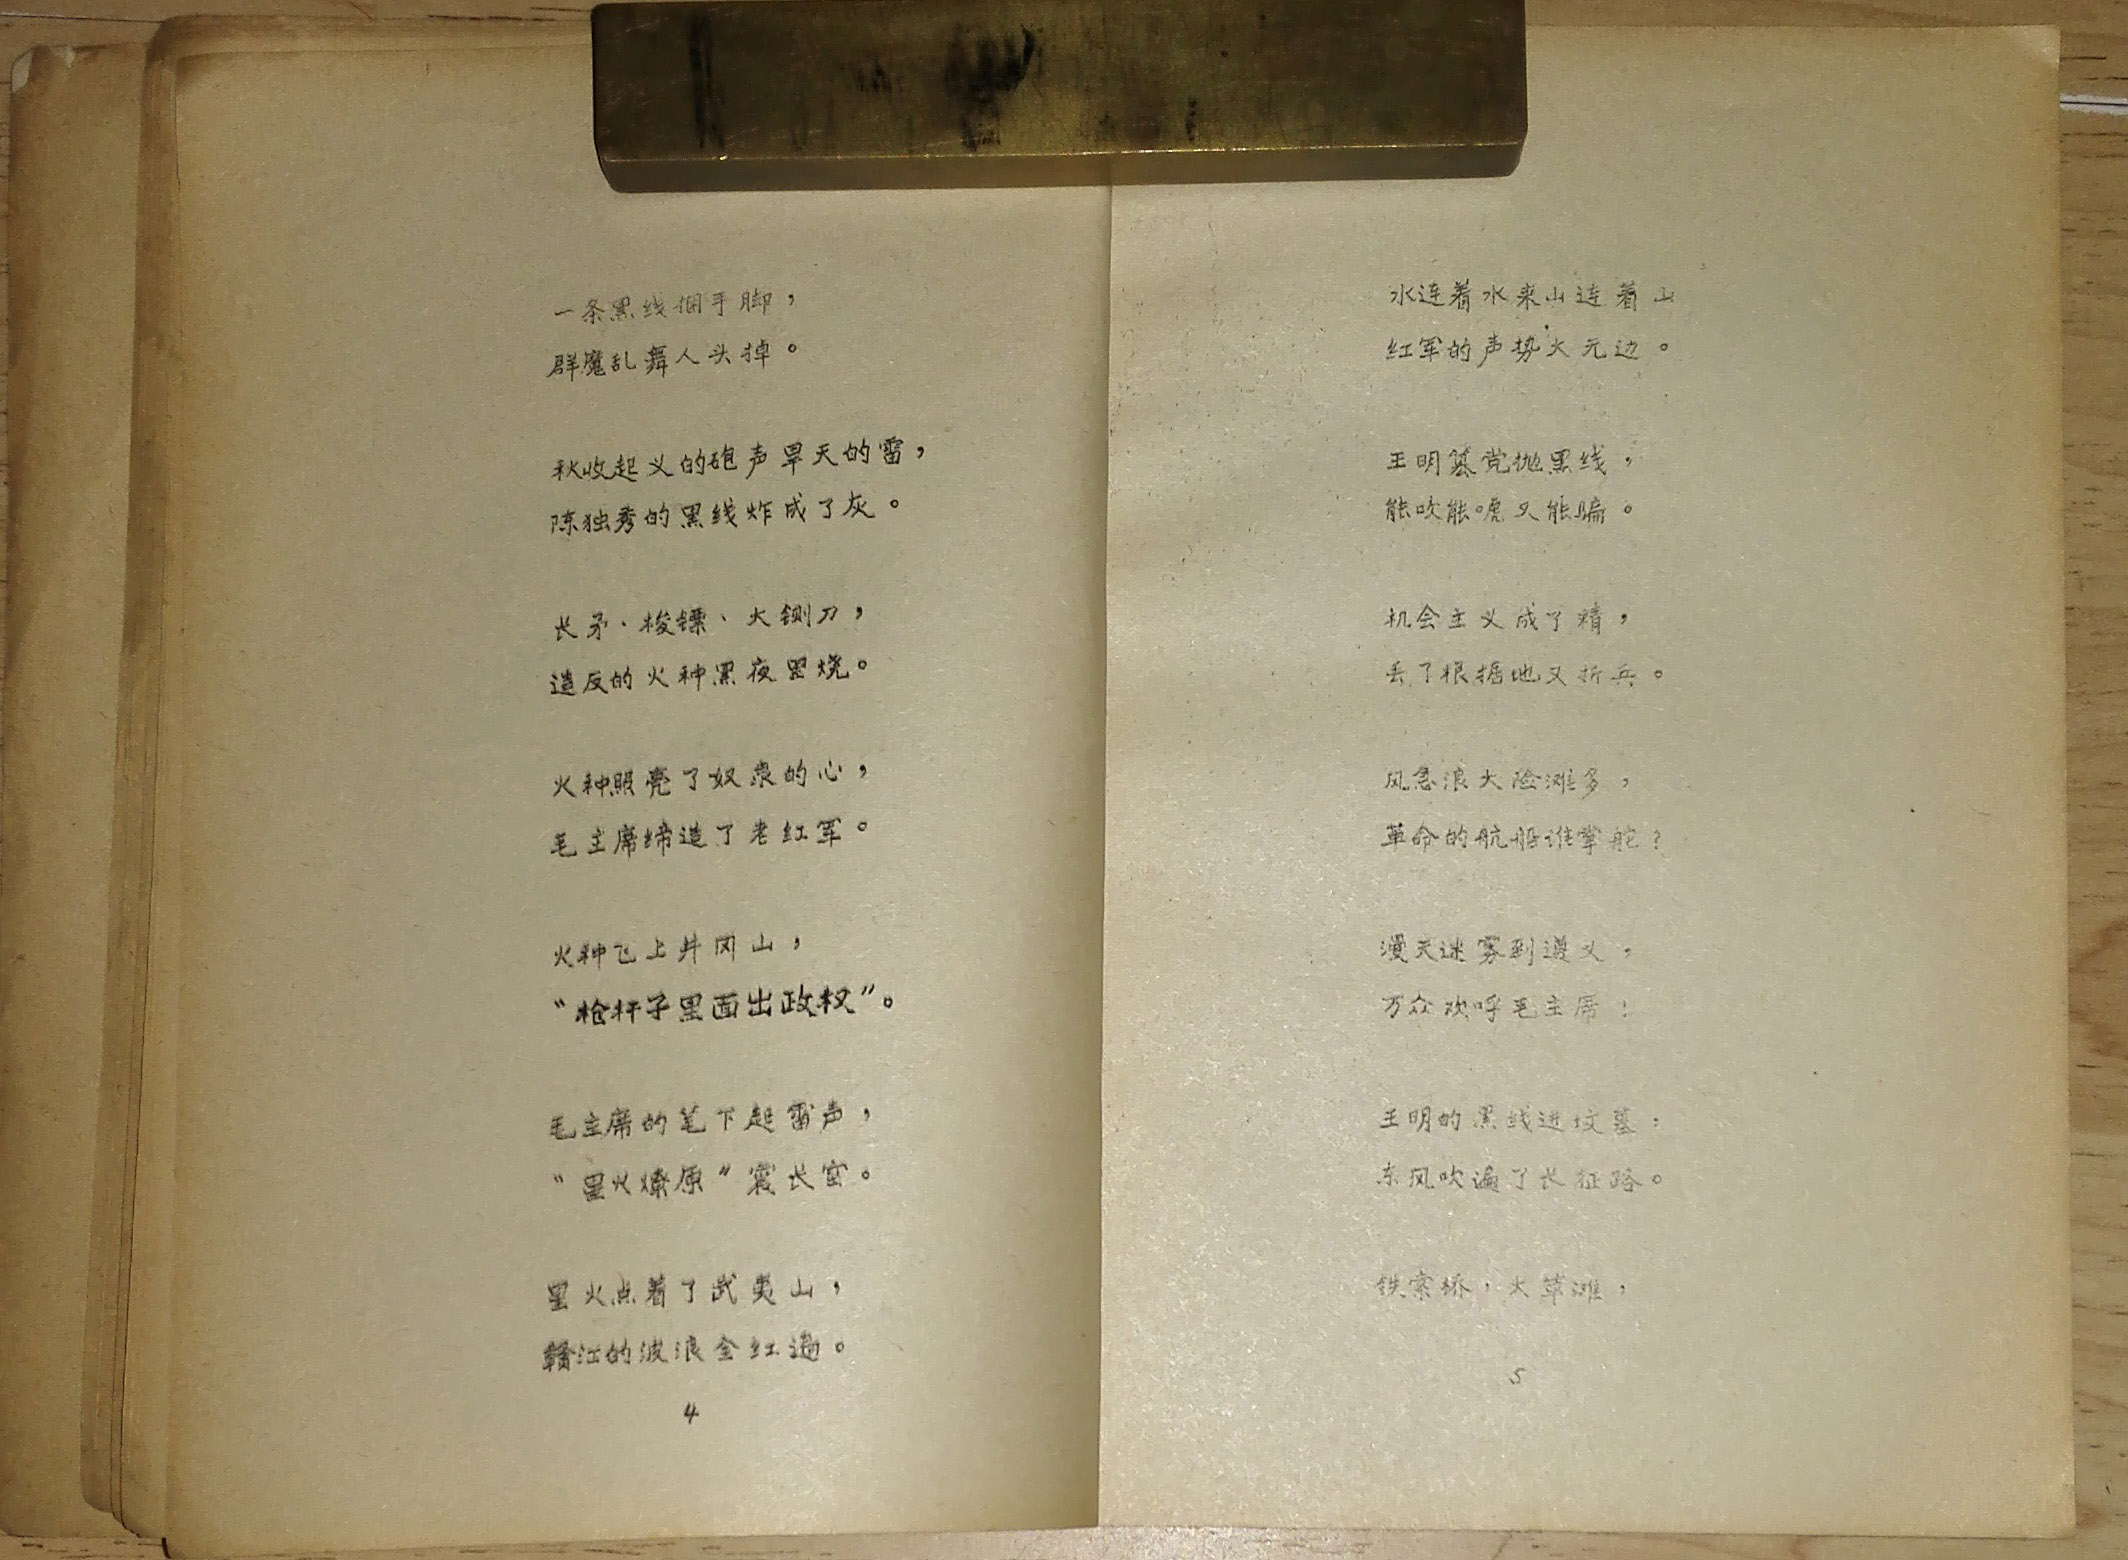 一条黑线捆手脚，
群魔乱舞人头掉。
秋收起义的砲声旱天的雷，
陈独秀的黑线炸成了灰。
长矛、梭镖、大铡刀，
造反的火种黑夜里烧。
火种照亮了奴隶的心，
毛主席缔造了老红军。
火种飞上井冈山，
“枪杆子里面出政权”。
毛主席的笔下起雷声，
“星火燎原”震长空。
星火点着了武夷山，
赣江的波浪全红遍。
4
水连着水来山连着山
红军的声势大无边。
王明篡党抛黑线，
能吹能唬又能骗。
机会主义成了精，
丢了根据地又折兵。
风急浪大险滩多，
革命的航船谁掌舵？
漫天迷雾到遵义，
万众欢呼毛主席！
王明的黑线进坟墓，
东风吹遍了长征路。
铁索桥，大草滩，
5